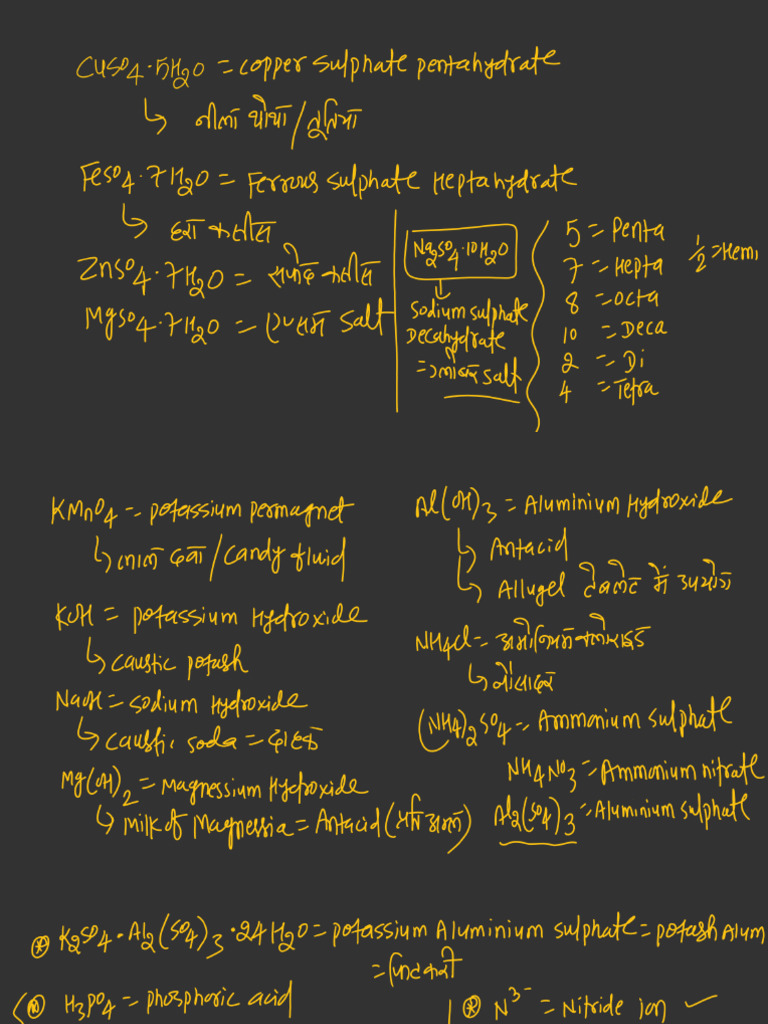 CuSO4·5H2O = copper sulphate pentahydrate
↳ नीला थोथा/तूतिया
FeSO4·7H2O = Ferrous sulphate Heptahydrate
↳ हरा कसीस
ZnSO4·7H2O = सफेद कसीस
MgSO4·7H2O = एप्सम salt
Na2SO4·10H2O
↓
sodium sulphate
Decahydrate
= ग्लोबर salt
5 = Penta
7 = Hepta
8 = octa
10 = Deca
2 = Di
4 = Tetra
1/2 = Hemi
KMnO4 = potassium permagnet
↳ लाल दवा/candy fluid
KOH = potassium Hydroxide
↳ caustic potash
NaOH = sodium Hydroxide
↳ caustic soda = दाहक
Mg(OH)2 = Magnessium Hydroxide
↳ Milk of Magnessia = Antacid (प्रति अम्ल)
Al(OH)3 = Aluminium Hydroxide
↳ Antacid
↳ Allugel टेबलेट में उपयोग
NH4Cl = अमोनियम क्लोराइड
↳ नौसादर
(NH4)2SO4 = Ammonium sulphate
NH4NO3 = Ammonium nitrate
Al2(SO4)3 = Aluminium sulphate
⊛ K2SO4·Al2(SO4)3·24H2O = potassium Aluminium sulphate = potash Alum
= फिटकरी
H3PO4 = phosphoric acid
⊛ N3- = Nitride ion ✓